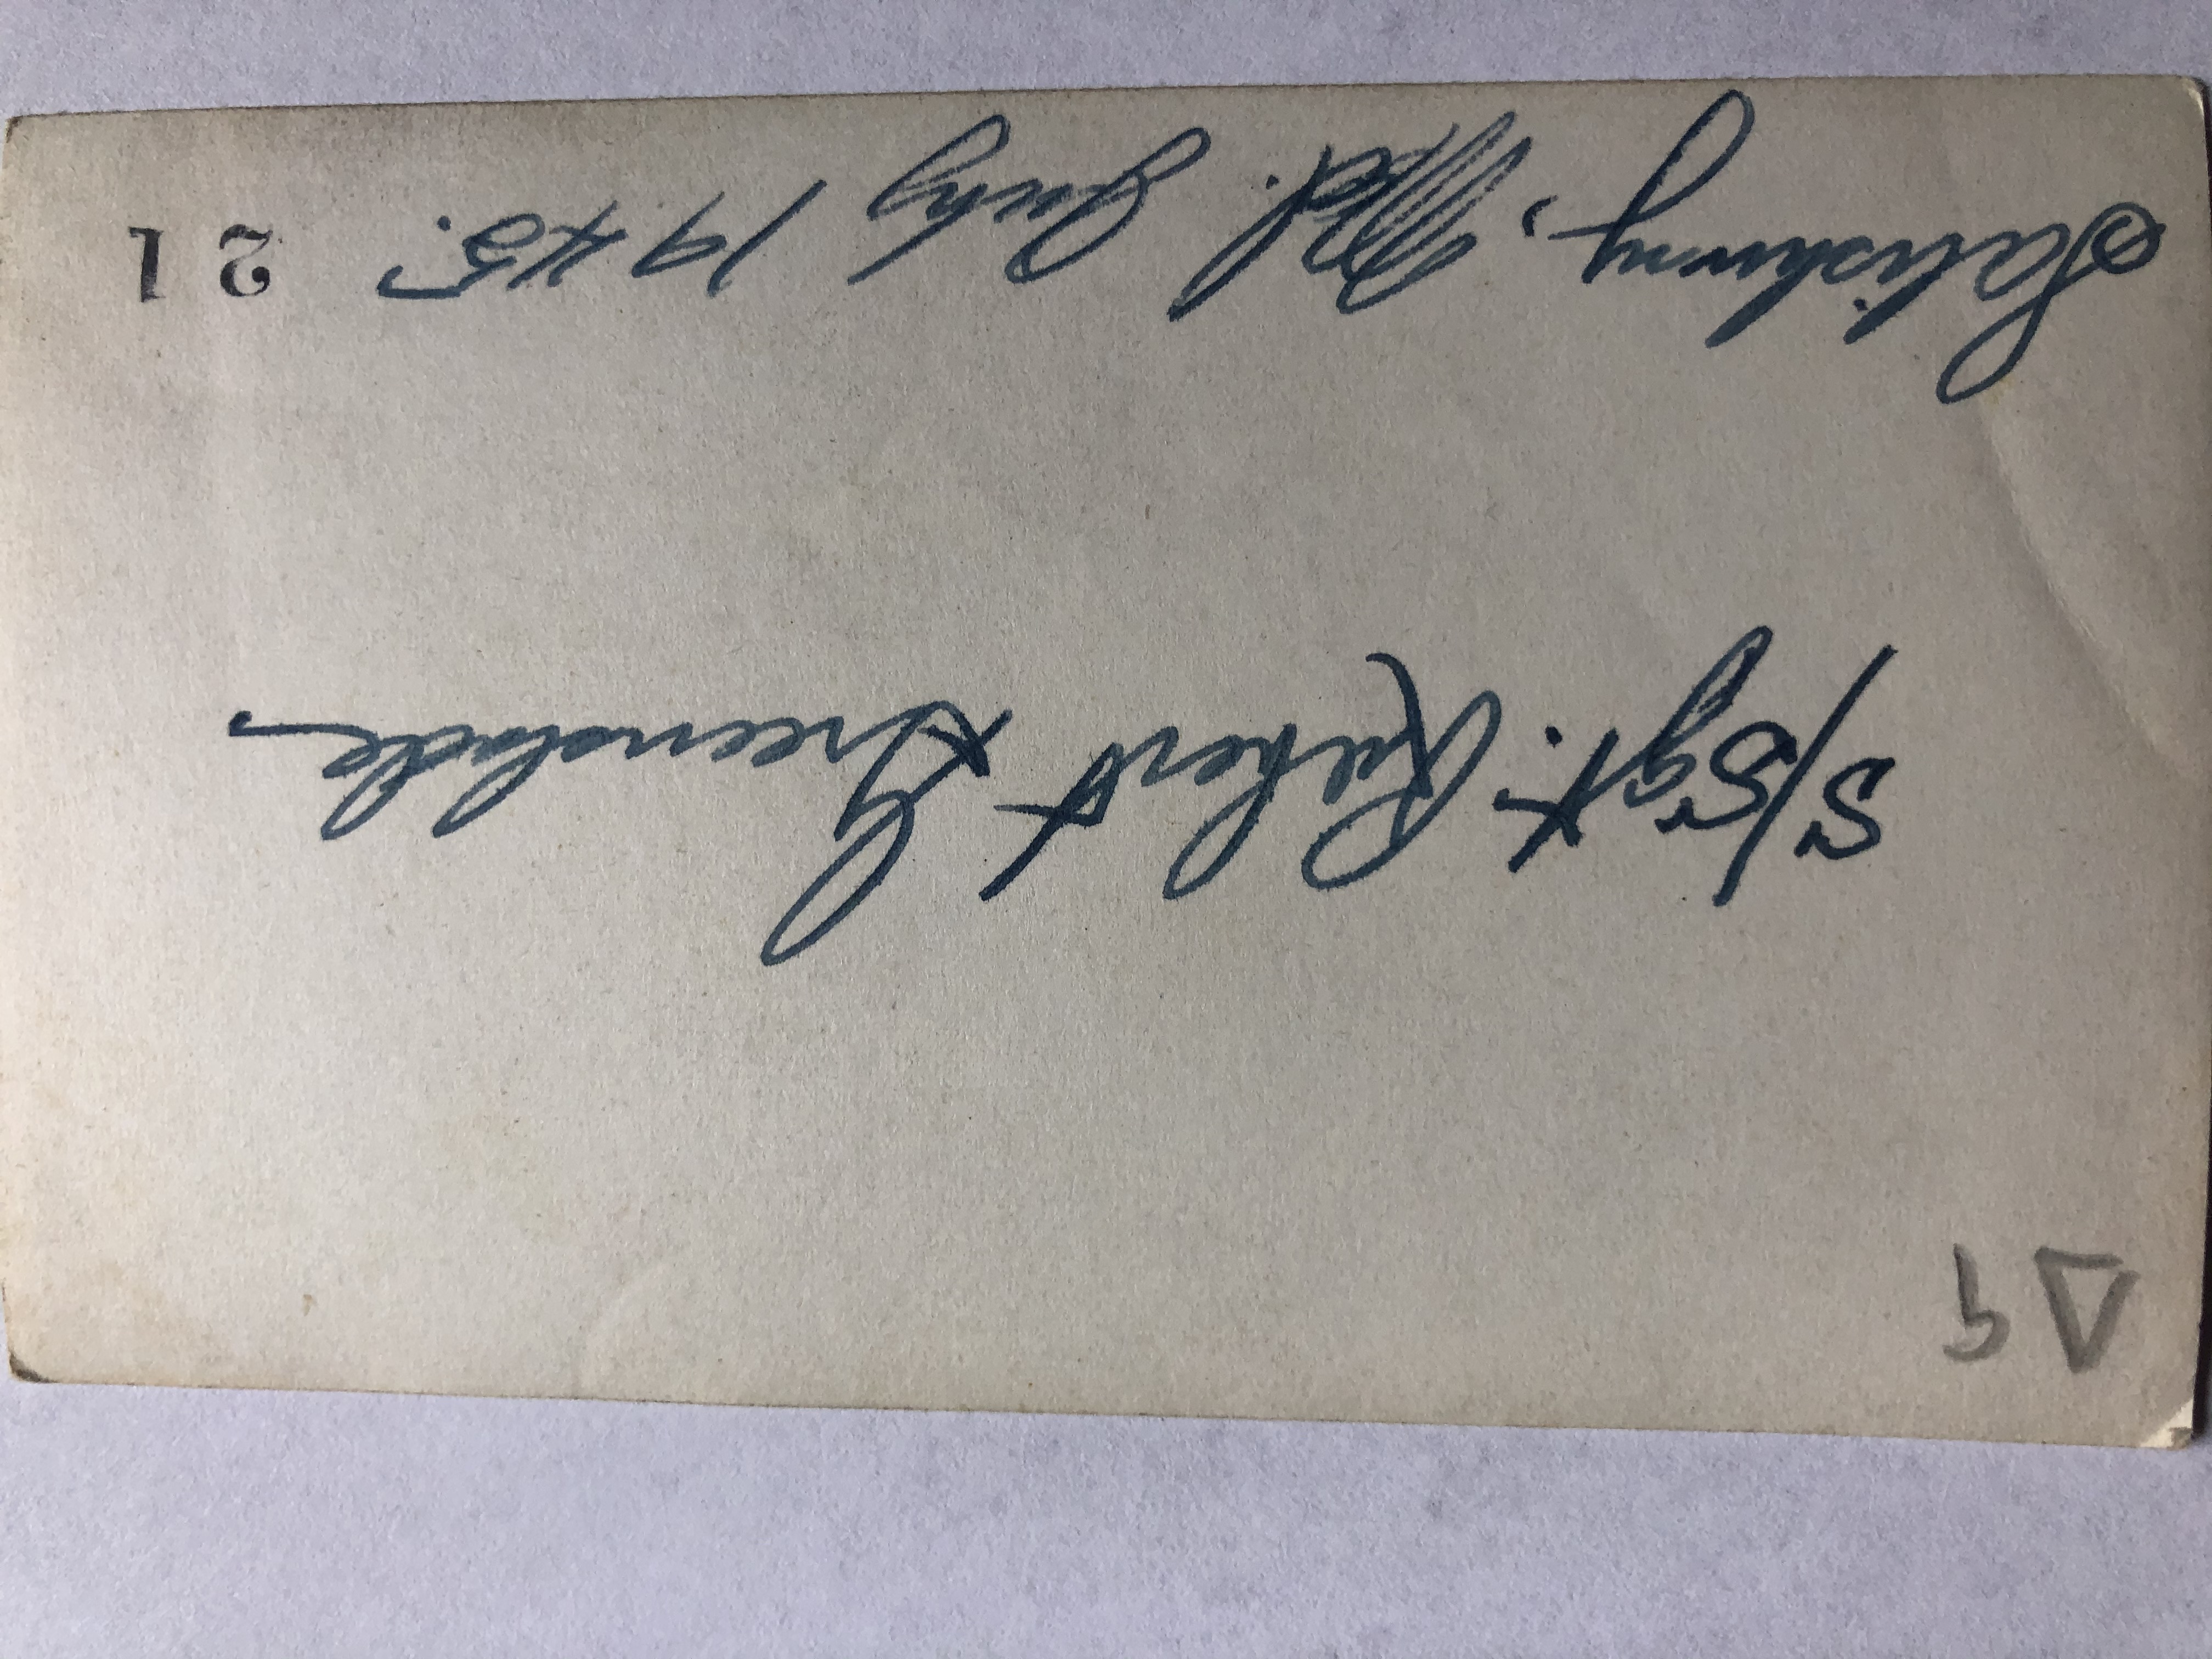 Δ9
S/Sgt. Robert Greenslade
Salisbury, Md. July 1945. 21